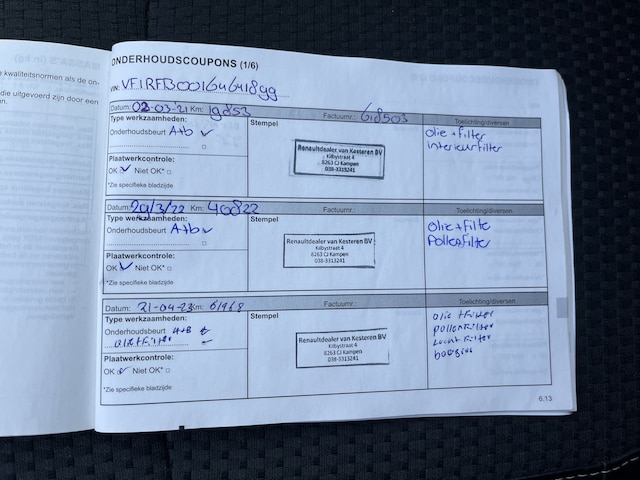 MASSA'S (in kg)
kwaliteitsnormen als de on-
die uitgevoerd zijn door een
ONDERHOUDSCOUPONS (1/6)
VIN: VF1RFB00164641899
Datum: 02-03-21 Km: 19853 Factuurnr.: 618503 Toelichting/diversen
Type werkzaamheden:
Stempel
Onderhoudsbeurt A+b
Plaatwerkcontrole:
OK Niet OK*
*Zie specifieke bladzijde
Renaultdealer van Kesteren BV
Kilbystraat 4
8263 CJ Kampen
038-3313241
olie + filter
interieurfilter
Datum: 29/3/22 Km: 40822 Factuurnr.: Toelichting/diversen
Type werkzaamheden:
Stempel
Onderhoudsbeurt A+b
Plaatwerkcontrole:
OK Niet OK*
*Zie specifieke bladzijde
Renaultdealer van Kesteren BV
Kilbystraat 4
8263 CJ Kampen
038-3313241
olie+filte
Pollenfilter
Datum: 21-04-23 Km: 61968 Factuurnr.: Toelichting/diversen
Type werkzaamheden:
Stempel
Onderhoudsbeurt A+B
olie+filter
Plaatwerkcontrole:
OK Niet OK*
*Zie specifieke bladzijde
Renaultdealer van Kesteren BV
Kilbystraat 4
8263 CJ Kampen
038-3313241
olie +filter
pollenfilter
Luchtfilter
6.13